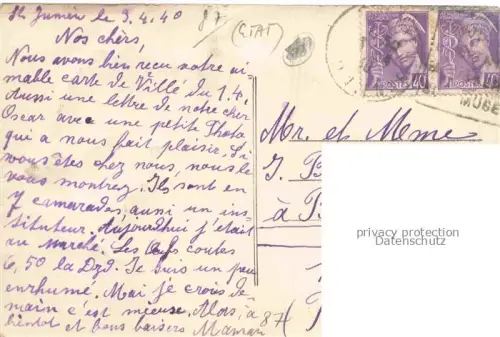 St Junien le 9.4.40
87 (STAT)
Nos chèrs,
Nous avons bien reçu votre ai-
mable carte de Villé du 1.4.
aussi une lettre de notre cher
Oscar avec une petite Photo
qui a nous fait plaisir. Si
vous êtes chez nous, nous le
vous montrez. Ils sont en
7 camarades, aussi un ins-
tituteur. Aujourdhui j'étais
au Marché. Les Oefs coutes
6,50 la Dzd. Je suis un peu
enrhumé. Mai je crois de-
main c'est mieuse. Alors, à
bientot et bons baisers Maman
87
Mr. et Mme
J. B
à B
POSTES 40
privacy protection
Datenschutz